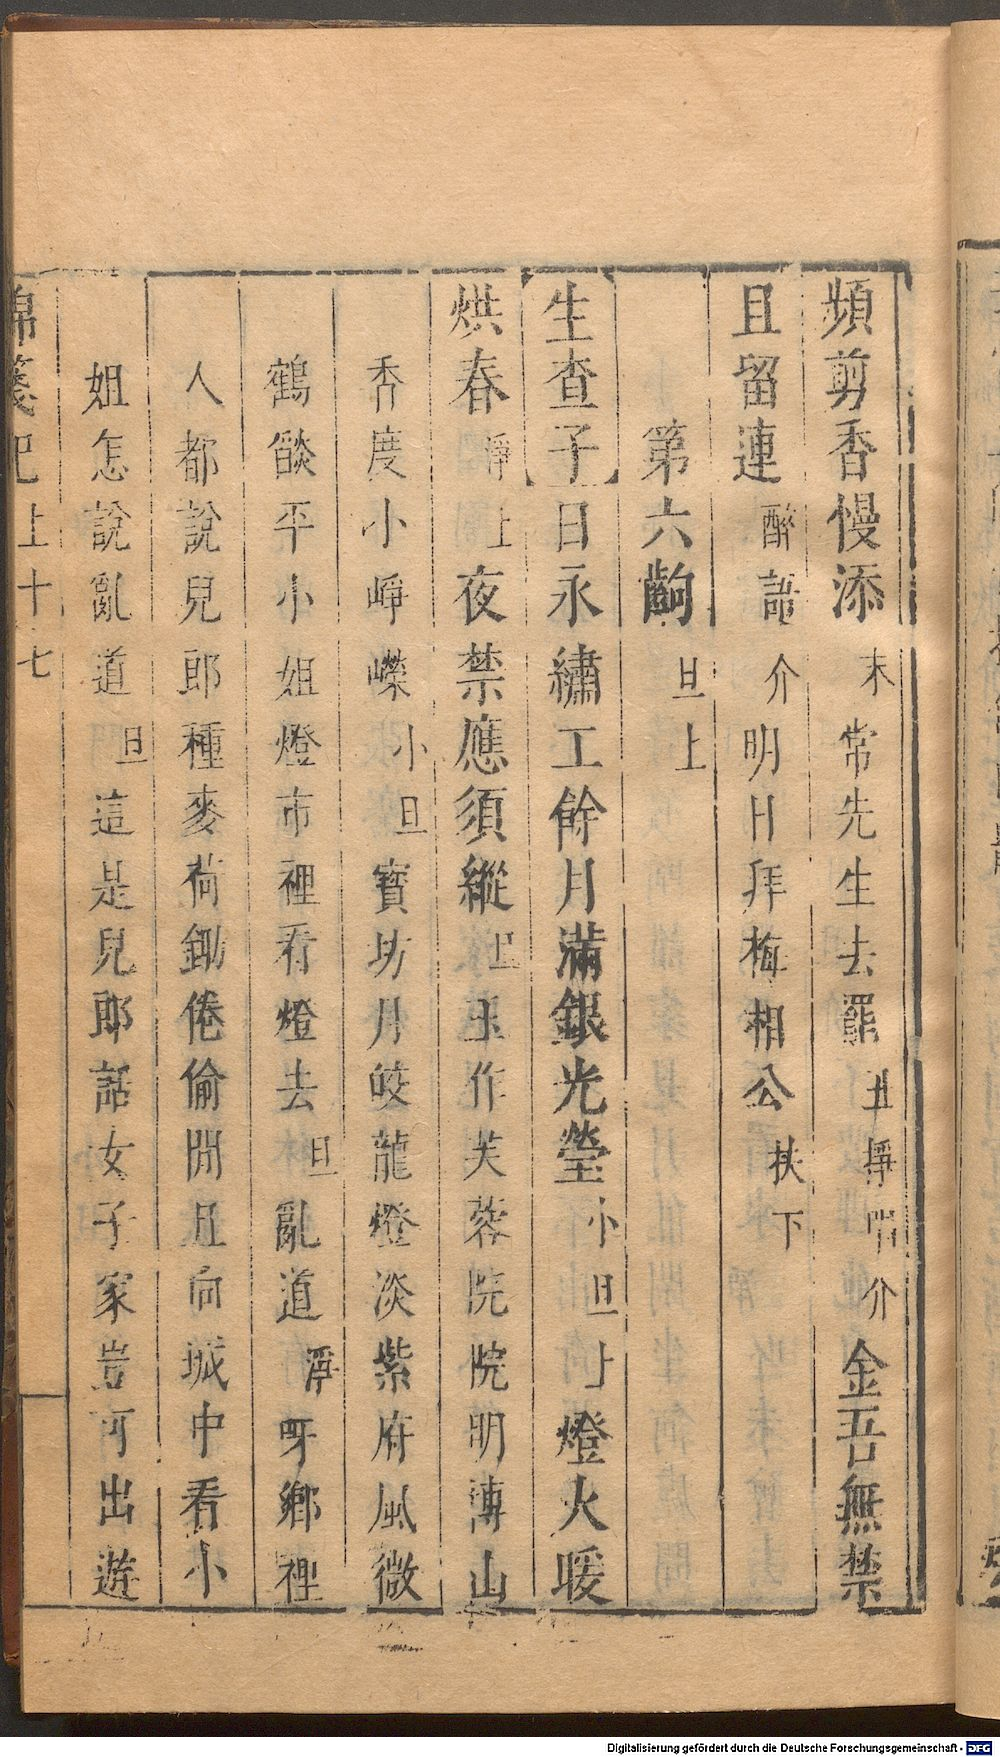 頻剪香慢添末常先生去罷丑掙唱介金吾無禁
且留連醉語介明日拜梅相公扶下
第六齣旦上
【生查子】日永繡工餘月滿銀光瑩小旦上燈火暖
烘春淨上夜禁應須縱旦玉作芙蓉院院明漙山
香度小崢嶸小旦寶坊月皎龍燈淡紫府風微
鶴燄平小姐燈市裡看燈去旦亂道淨呀鄉裡
人都說兒郎種麥荷鋤倦偷閒且向城中看小
姐怎說亂道旦這是兒郎話女子家豈可出遊
錦箋記上十七
Digitalisierung gefördert durch die Deutsche Forschungsgemeinschaft - DFG